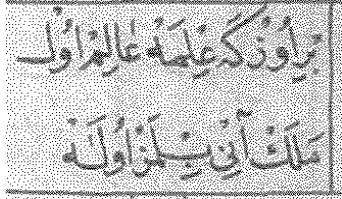 بِراُوزْكَه عِلْمَه عَالِمْ اُولْ
مَلَكْ آنِي بِيلمَزْ اُولَه